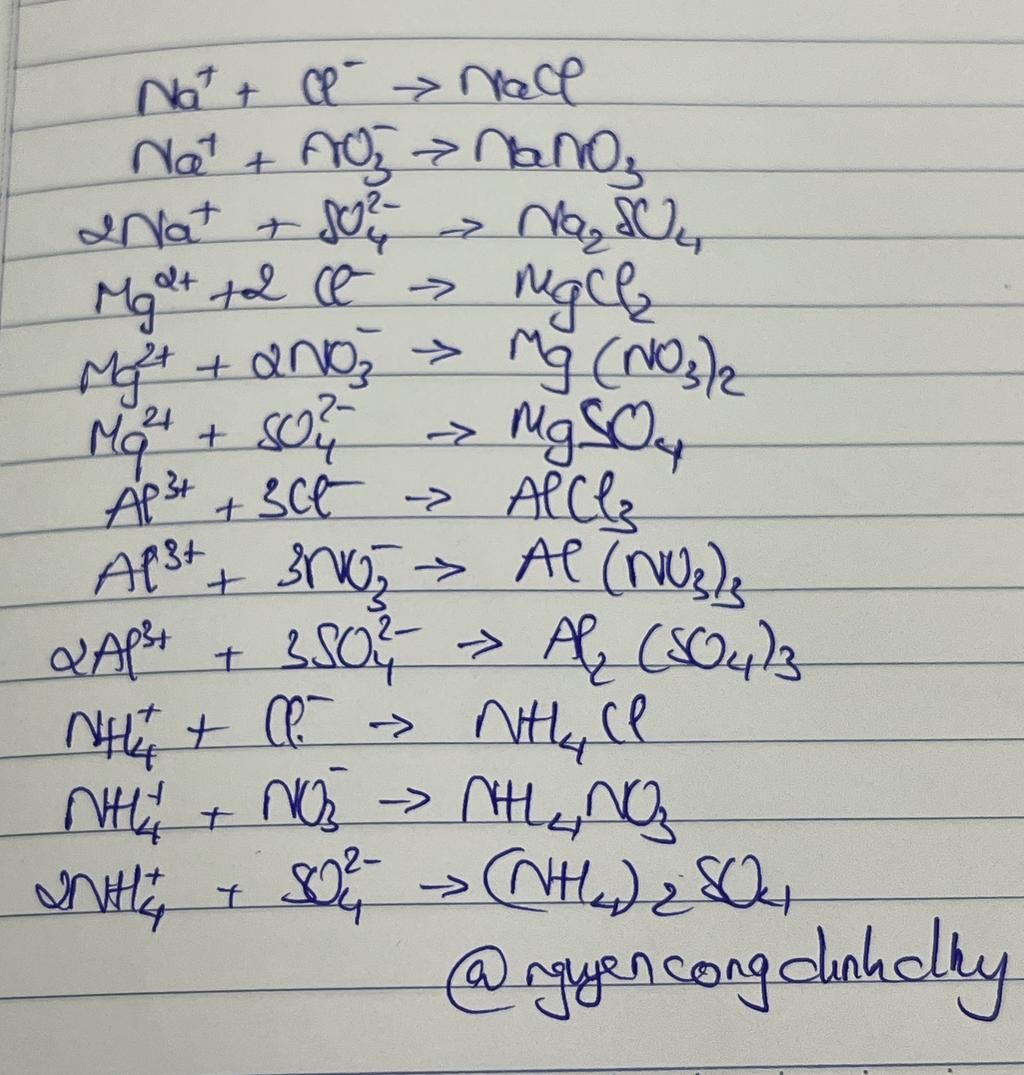 Na⁺ + Cl⁻ → NaCl
Na⁺ + NO₃⁻ → NaNO₃
2Na⁺ + SO₄²⁻ → Na₂SO₄
Mg²⁺ + 2Cl⁻ → MgCl₂
Mg²⁺ + 2NO₃⁻ → Mg(NO₃)₂
Mg²⁺ + SO₄²⁻ → MgSO₄
Al³⁺ + 3Cl⁻ → AlCl₃
Al³⁺ + 3NO₃⁻ → Al(NO₃)₃
2Al³⁺ + 3SO₄²⁻ → Al₂(SO₄)₃
NH₄⁺ + Cl⁻ → NH₄Cl
NH₄⁺ + NO₃⁻ → NH₄NO₃
2NH₄⁺ + SO₄²⁻ → (NH₄)₂SO₄